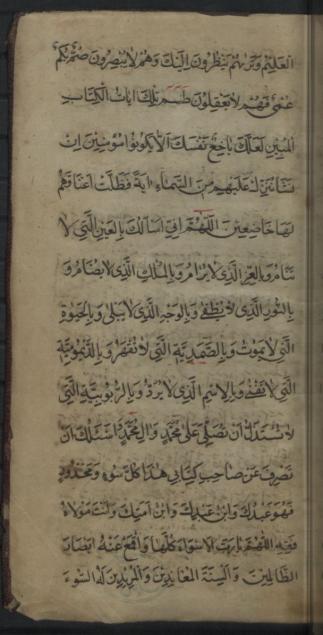 العليم وتريهم ينظرون اليك وهم لا يبصرون صم بكم
عمى فهم لا يعقلون طسم تلك ايات الكتاب
المبين لعلك باخع نفسك الا يكونوا مؤمنين ان
نشا ننزل عليهم من السماء اية فظلت اعناقهم
لها خاضعين اللهم انى اسالك بالعين التى لا
تنام وبالعز الذى لا يرام وبالملك الذى لا يضام و
بالنور الذى لا يطفى وبالوجه الذى لا يبلى وبالحيوة
التى لا تموت وبالصمدية التى لا تقهر وبالديمومية
التى لا تفنى وبالاسم الذى لا يرد وبالربوبية التى
لا تستذل ان تصلى على محمد وال محمد واسئلك ان
تصرف عن صاحب كتابى هذا كل سوء ومحذور
فهو عبدك وابن عبدك وابن امتك وانت مولاه
فقه اللهم يا رب الاسواء كلها واقمع عنه ابصار
الظالمين والسنة المعاندين والمريدين له السوء